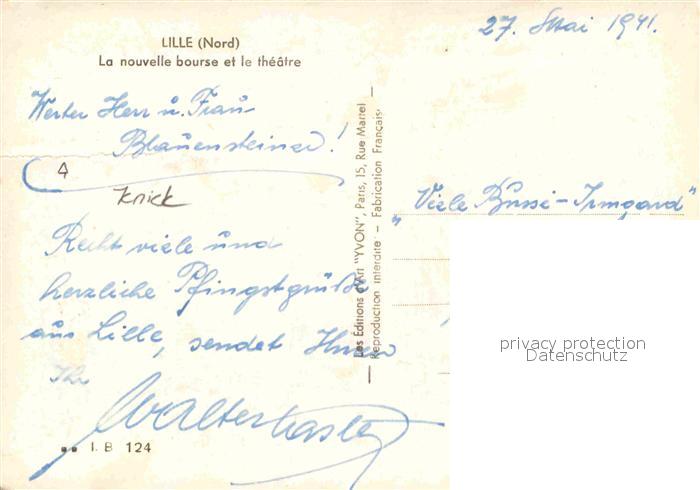 LILLE (Nord)
La nouvelle bourse et le théâtre
27. Mai 1941.
Werter Herr u. Frau
Blauensteiner!
4
Knick
Recht viele und
herzliche Pfingstgrüße
aus Lille, sendet Ihnen
Ihr
Walter
"Viele Bussi - Irmgard"
Les Éditions d'Art "YVON", Paris, 15, Rue Martel
Reproduction interdite - Fabrication Française
privacy protection
Datenschutz
I. B 124